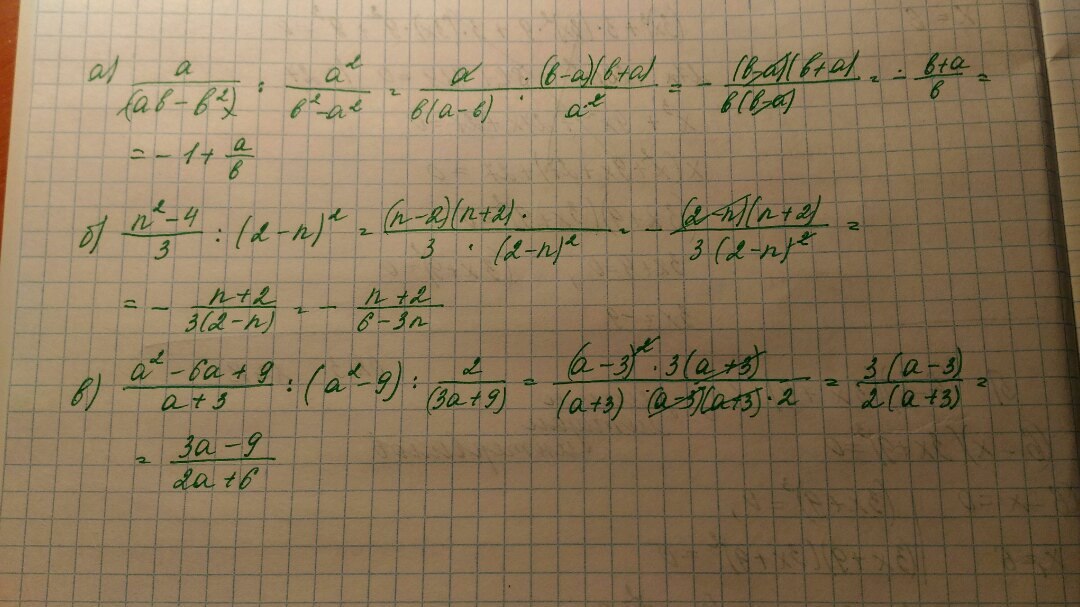 а) a/(ab − b²) : a²/(b² − a²) = a/(b(a − b)) · (b−a)(b+a)/a² = − (b−a)(b+a)/(b(b−a)) = − (b+a)/b =
= − 1 + a/b
б) (n² − 4)/3 : (2 − n)² = (n − 2)(n+2) ·/(3 · (2−n)²) = − (2 − n)(n+2)/(3(2 − n)²) =
= − (n+2)/(3(2 − n)) = − (n+2)/(6 − 3n)
в) (a² − 6a + 9)/(a + 3) : (a² − 9) : 2/(3a+9) = (a − 3)² · 3(a + 3)/((a+3) · (a−3)(a+3) · 2) = 3(a − 3)/(2(a+3)) =
= (3a − 9)/(2a + 6)